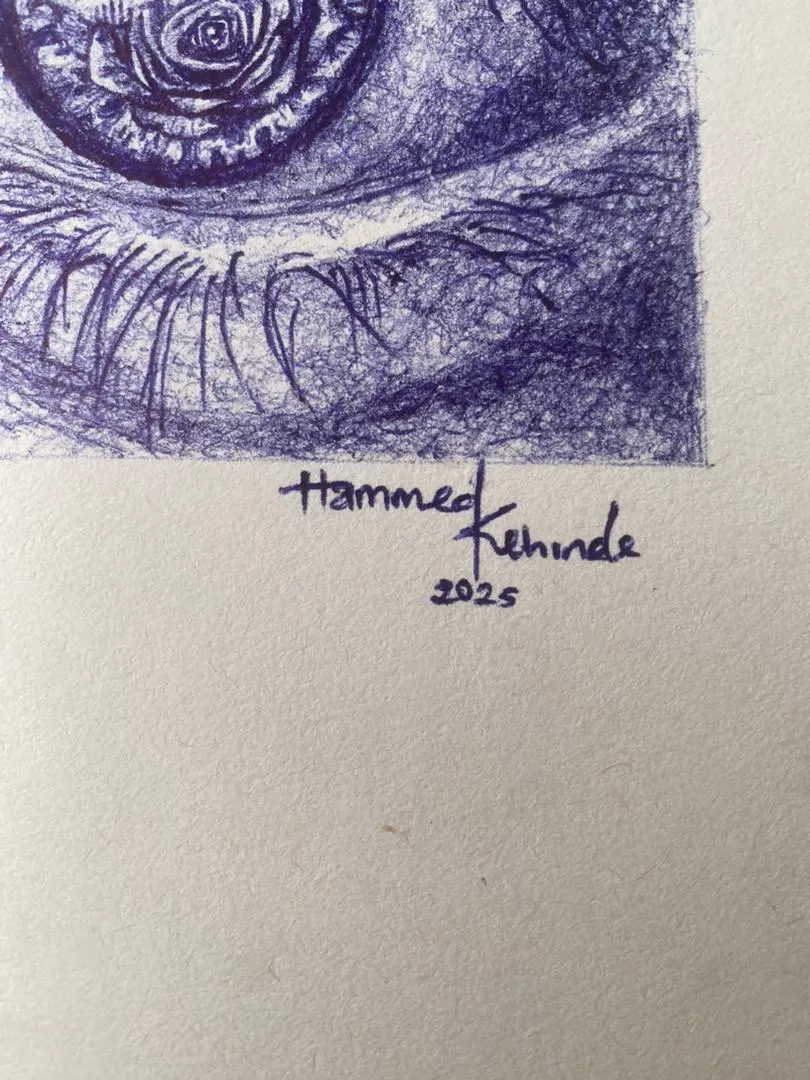 Hammed
Kehinde
2025